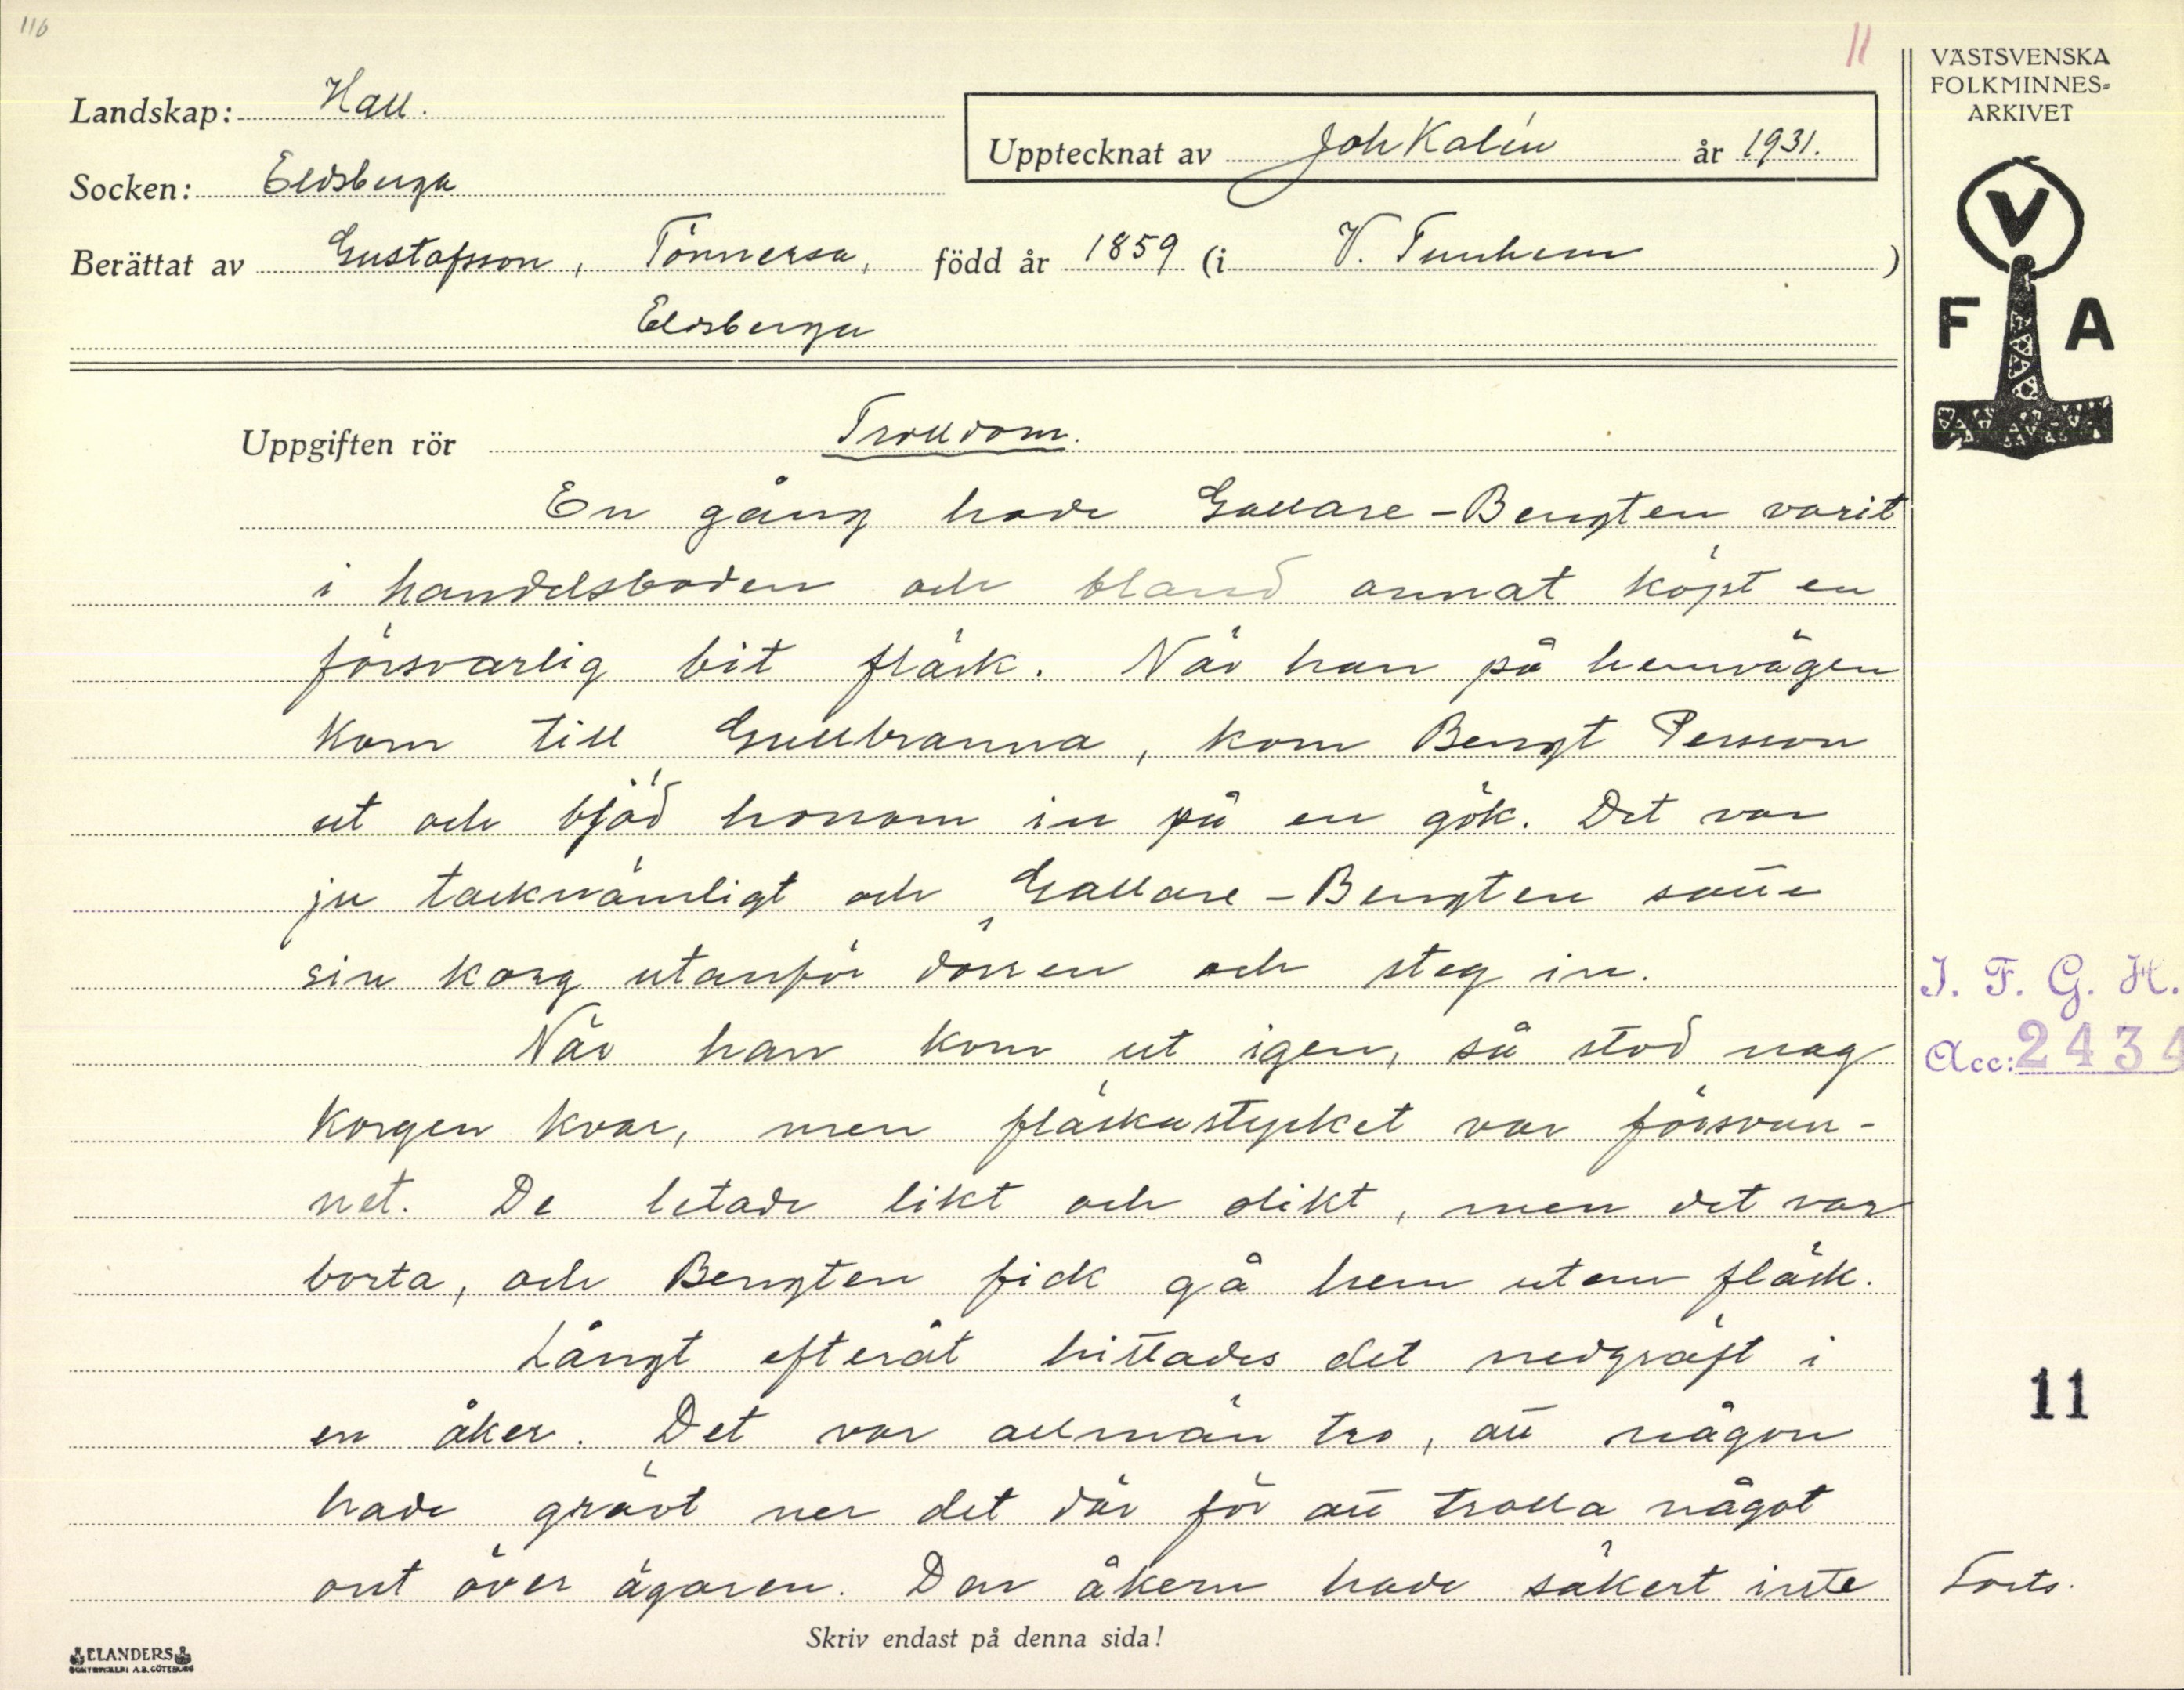 116
11
Landskap: Hall.
Upptecknat av Joh Kalén år 1931.
Socken: Eldsberga
Berättat av Gustafsson, Tönnersa, född år 1859 (i V. Tunhem)
Eldsberga
Uppgiften rör Trolldom.
En gång hade Gallare-Bengten varit
i handelsboden och bland annat köpt en
försvarlig bit fläsk. När han på hemvägen
kom till Gullbranna, kom Bengt Persson
ut och bjöd honom in på en gök. Det var
ju tacknämligt och Gallare-Bengten satte
sin korg utanför dörren och steg in.
När han kom ut igen, så stod nog
korgen kvar, men fläskastycket var försvun-
net. De letade likt och olikt, men det var
borta, och Bengten fick gå hem utan fläsk.
Långt efteråt hittades det nedgräft i
en åker. Det var allmän tro, att någon
hade grävt ner det där för att trolla något
ont över ägaren. Den åkern hade säkert inte
Skriv endast på denna sida!
ELANDERS
BOKTRYCKERI A.B. GÖTEBORG
VÄSTSVENSKA
FOLKMINNES-
ARKIVET
V
F A
I. F. G. H.
Acc: 2434
11
Forts.